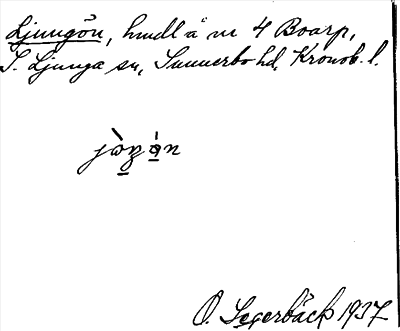 Ljungön, hmdl å nr 4 Boarp,
S. Ljunga sn, Sunnerbo hd, Kronob. l.
O. Segerbäck 1937